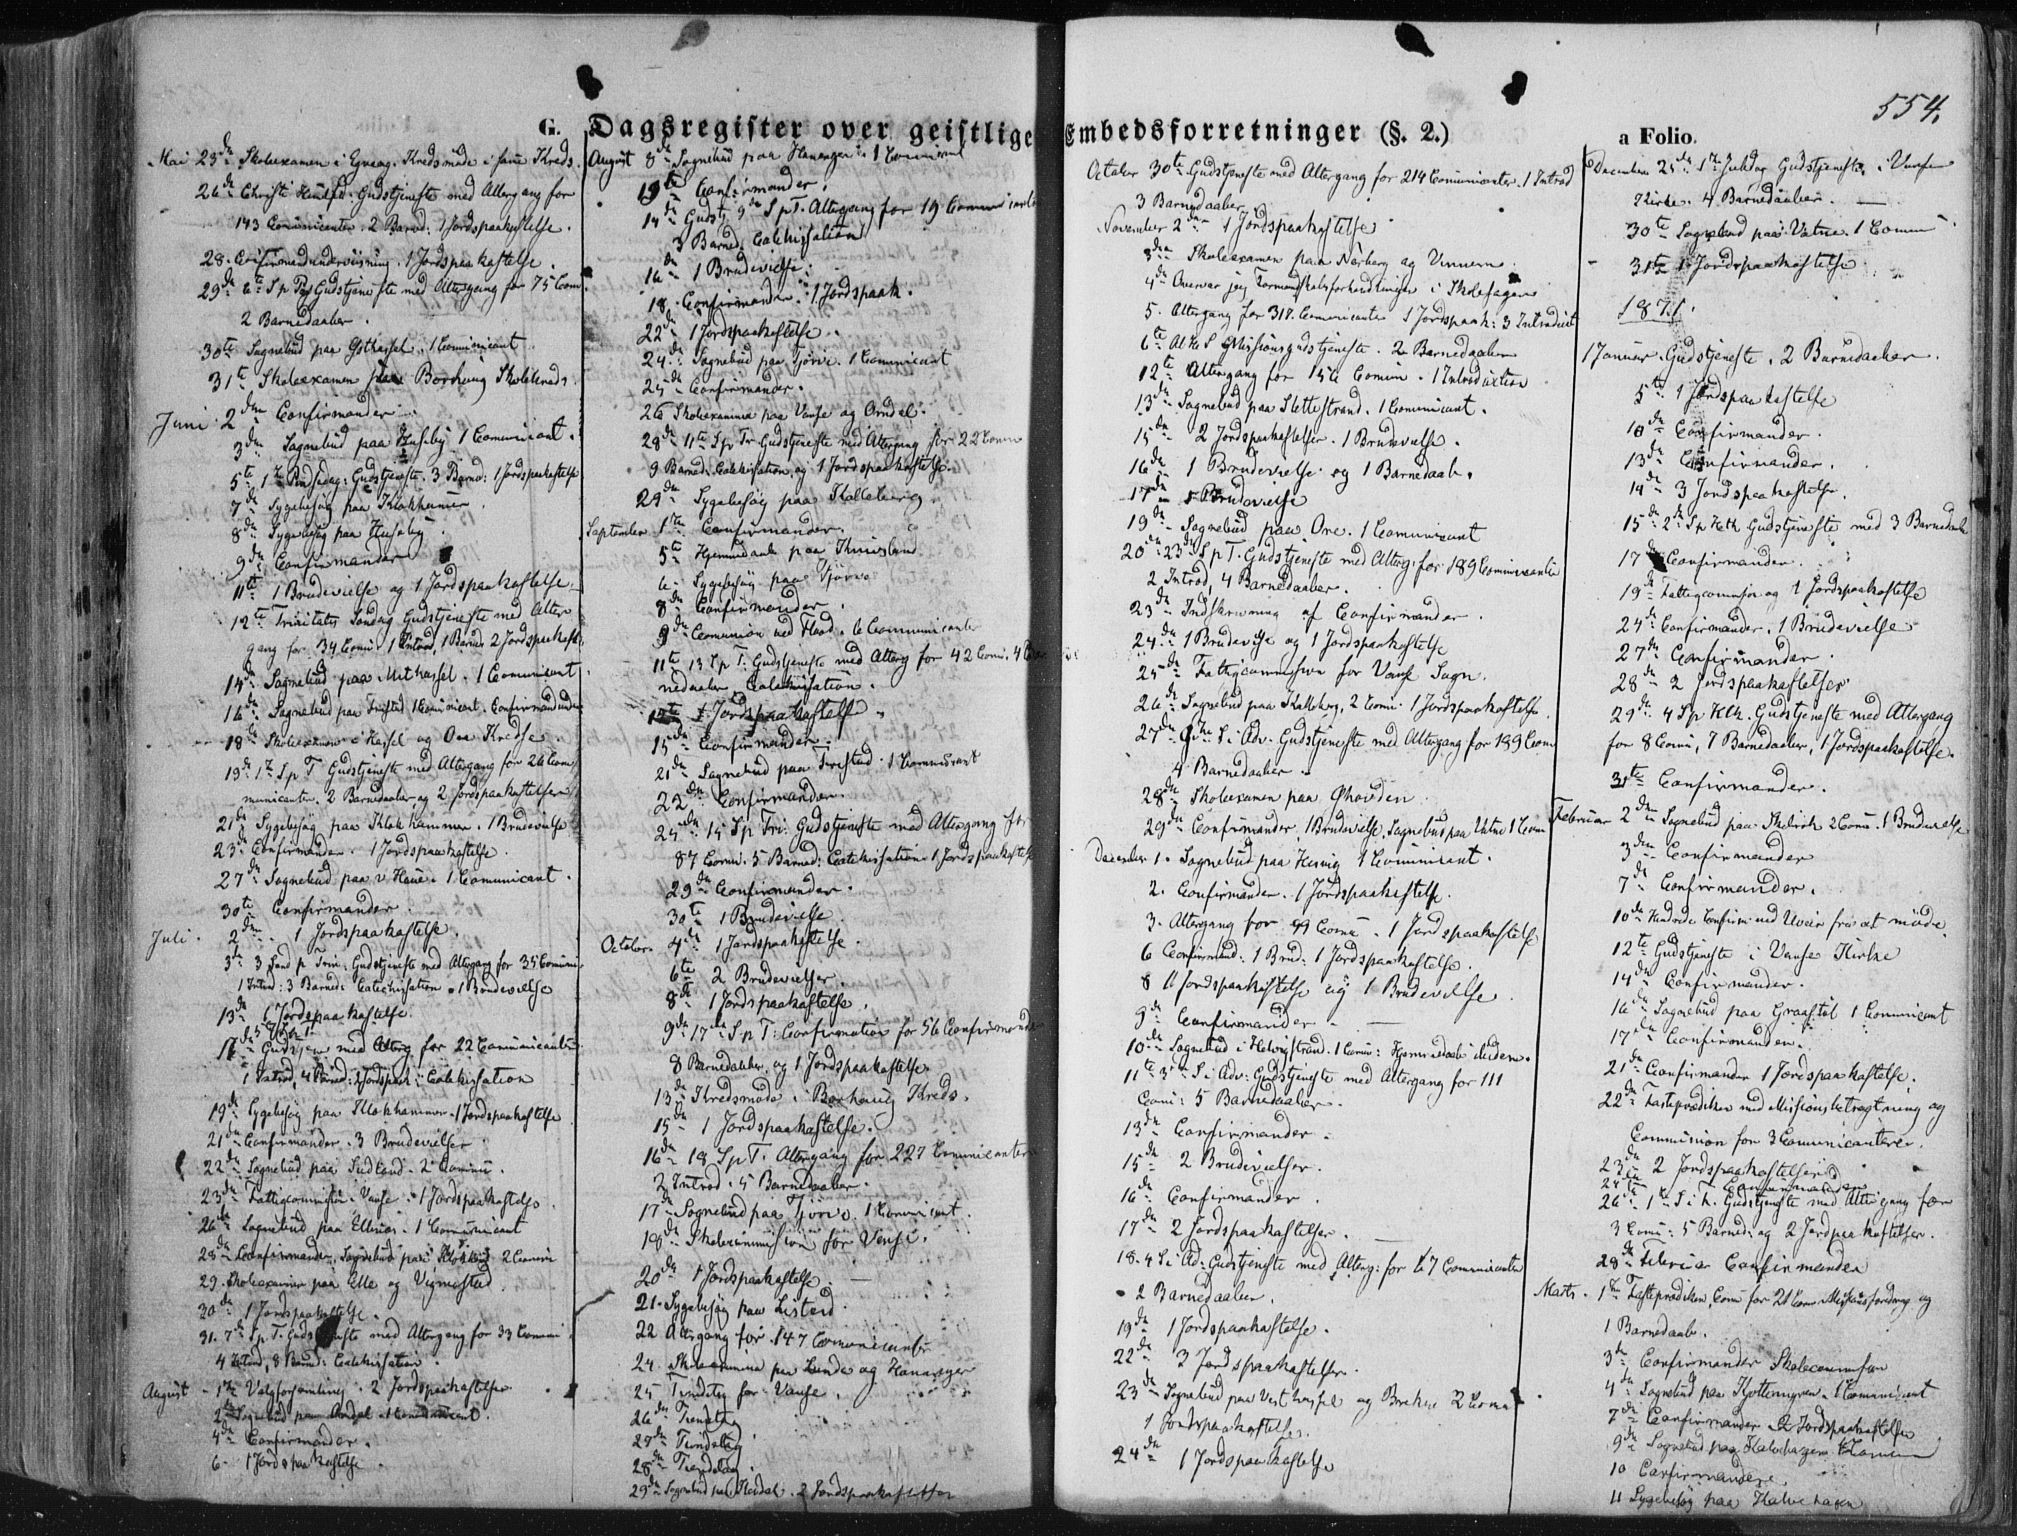 554.
G. Dagsregister over geistlige Embedsforretninger (§. 2.)
a Folio.
Mai 23de Skoleexamen i Kredsmøde i samme Kreds.
26de Christi Gudstjeneste med Altergang for
143 Communicanter. 2 Barned: 1 Jordspaakastelse.
28. 1 Jordspaakastelse.
29de Gudstjeneste med Altergang for 75 Com
2 Barnedaaber.
30te Sognebud paa Østhassel. 1 Communicant
31te Skoleexamen paa Borhaug Skolekreds.
Juni 2den Confirmander
3die Sognebud paa Huseby 1 Communicant.
5te 1ste Pindsedag: Gudstjeneste. 3 Barned: 1 Jordspaakastelse
7de Sygebesøg paa Klokhammer.
8de Sygebesøg paa Huseby.
9de Confirmander
11te 1 Brudevielse og 1 Jordspaakastelse.
12te Trinitatis Søndag Gudstjeneste med Alter
gang for 34 Comu 1 Introd, 1 Barned 2 Jordspaakast
14de Sognebud paa Mithassel. 1 Communicant
16de Sognebud paa 1 Communicant. Confirmand
18de Skoleexamen i Hassel og Ore Kredse.
19de 1ste S p T Gudstjeneste med Altergang for 26 Com
municanter. 2 Barnedaaber og 2 Jordspaakastelser
21de Sygebesøg paa Klokhammer. 1 Brudevielse
23de Confirmander. 1 Jordspaakastelse.
27de Sognebud paa v Haue. 1 Communicant.
30te Confirmander.
Juli. 2den 1 Jordspaakastelse.
3die 3 Sønd p Trin: Gudstjeneste med Altergang for 35 Communi
1 Introd: 3 Barned: Catechisation. 1 Brudevielse
13de 1 Jordspaakastelse.
17de Gudstjen med Alterg for 22 Communicanter
1 Introd, 4 Barned: Jordspaak: Catechisation
19de Sygebesøg paa Klokhammer. 1 Jordspaakastelse
21de Confirmander. 3 Brudevielser
22de Sognebud paa Sudland. 2 Commu.
23de Fattigcommission. Vanse. 1 Jordspaakastelse.
26de Sognebud paa 1 Communicant
28de Confirmander. Sognebud paa 2 Commu
29. Skoleexamen paa Elle og Vigmostad.
30te 1 Jordspaakastelse.
31. 7de S p T. Gudstjeneste med Altergang for 33 Commu
4 Introd, 8 Barned: Catechisation.
August 1ste Valgforsamling. 2 Jordspaakastelser
2den Sognebud paa 1 Communicant.
4de Confirmander.
6 1 Jordspaakastelse.
August 8de Sognebud paa 1 Communicant
Confirmander.
14de Gudstj. 9de S p T. Altergang for 19 Communicanter
3 Barned. Catechisation
16de 1 Brudevielse.
18. Confirmander. 1 Jordspaak.
22de 1 Jordspaakastelse.
24de Sognebud paa Tjörve. 1 Communicant
25de Confirmander.
26 Skoleexamina paa Vanse og
28de 11te S p Tr Gudstjeneste med Altergang for 22 Comm
9 Barned: Catechisation og 1 Jordspaakastelse
29de Sygebesøg paa Kalleberg.
September 1ste Confirmander.
5te Hjemmedaab paa
6. Sygebesøg paa Tjörve
8de Confirmander.
9de Communion ved 6 Communicanter
11te 13 S p T. Gudstjeneste med Alterg for 42 Comu. 4 Bar
nedaaber Catechisation.
1 Jordspaakastelse
15de Confirmander.
21de Sognebud paa 1 Communicant
22den Confirmander.
25de 15 S p Tri: Gudstjeneste med Altergang for
87 Commu. 5 Barned: Catechisation 1 Jordspaakastelse
29de Confirmander.
30te 1 Brudevielse.
October. 4de 1 Jordspaakastelse.
6te 2 Brudevielser.
8de 1 Jordspaakastelse.
9de 17de S p T: Confirmation for 56 Confirmander
8 Barnedaaber, og 1 Jordspaakastelse
13de Kredsmøde i Borhaug Kreds.
15de 1 Jordspaakastelse.
16de 18 S p T. Altergang for 227 Communicanter
2 Introd. 5 Barnedaaber.
17de Sognebud paa Tjörve. 1 Communicant.
18de Skolecommission for Vanse.
20de 1 Jordspaakastelse.
21. Sygebesøg paa Listeid.
22 Altergang for 147 Communicanter
24. Skoleexamina paa Lunde og
25 for Vanse.
26de
27de
28de
29de Sognebud 2 Jordspaakastelser
October 30te Gudstjeneste med Altergang for 214 Communicanter. 1 Introd
3 Barnedaaber
November 2den 1 Jordspaakastelse
3die Skoleexamen paa Nærberg og
4de Overvar jeg Formandskabsforhandlinger i
5. Altergang for 318. Communicanter 1 Jordspaak: 3 Introduct
6te Missionsgudstjeneste. 2 Barnedaaber
12te Altergang for 156 Commu. 1 Introduction
13de Sognebud paa Slettestrand. 1 Communicant.
15de 2 Jordspaakastelser. 1 Brudevielse.
16de 1 Brudevielse og 1 Barnedaab.
17de Brudevielse
19de Sognebud paa Ore. 1 Communicant
20de 23de S p T. Gudstjeneste med Alterg: for 189 Communicanter
2 Introd, 4 Barnedaaber.
23de Indskrivning af Confirmander.
24de 1 Brudevielse og 1 Jordspaakastelse
25de Fattigcommission for Vanse Sogn.
26de Sognebud paa Kalleberg, 2 Comu. 1 Jordspaakastelse
27de S i Adv. Gudstjeneste med Altergang for 199 Com
4 Barnedaaber.
28de Skoleexamen paa
29de Confirmander, 1 Brudevielse, Sognebud paa Vatne 1 Com
December 1. Sognebud paa 1 Communicant.
2. Confirmander. 1 Jordspaakastelse.
3. Altergang for 99 Commu. 1 Jordspaakastelse
6 Confirmand: 1 Brud: 1 Jordspaakastelse.
8 Jordspaakastelse og 1 Brudevielse
9de Confirmander
10de Sognebud i Helvigstrand. 1 Comu: Hjemmedaab
11te 3de S i Adv. Gudstjeneste med Altergang for 111
Comu: 5 Barnedaaber.
13de Confirmander.
15de 2 Brudevielser.
16de Confirmander.
17de 2 Jordspaakastelser.
18. 4 S i Ad. Gudstjeneste med Alterg: for 67 Communicanter
2 Barnedaaber.
19de 1 Jordspaakastelse.
22de 3 Jordspaakastelser.
23de Sognebud paa Vesthassel og Brekne 2 Comu
1 Jordspaakastelse.
24de 1 Jordspaakastelse
December 25de 1ste Juledag Gudstjeneste i Vanse
Kirke. 4 Barnedaaber.
30te Sognebud paa Vatne. 1 Commu
31te 1 Jordspaakastelse
1871.
1 Januar. Gudstjeneste. 2 Barnedaaber.
5te 1 Jordspaakastelse
10de Confirmander.
13de Confirmander.
14de 3 Jordspaakastelse.
15de 2de S p Hkth. Gudstjeneste med 3 Barnedaab
17de Confirmander.
19de Fattigcommission og 1 Jordspaakastelse
24de Confirmander. 1 Brudevielse
27de Confirmander.
28de 2 Jordspaakastelser
29de 4 S p Hkth. Gudstjeneste med Altergang
for 8 Comu, 7 Barnedaaber, 1 Jordspaakastelse.
31te Confirmander.
Februar 2den Sognebud paa 2 Comu. 1 Brudevielse
3die Confirmander
7de Confirmander.
10de Hindrede Confirm: ved Uveir fra at møde.
12te Gudstjeneste i Vanse Kirke
14de Confirmander.
16de Sognebud paa Graastøl 1 Communicant
17de Confirmander.
21de Confirmander 1 Jordspaakastelse.
22de Fasteprædiken med Missionsbetragtning og
Communion for 3 Communicantere.
23de 2 Jordspaakastelser
24de Confirmander
26de 1ste S i F. Gudstjeneste med Altergang for
3 Comu: 5 Barned: og 2 Jordspaakastelser.
28de Februar Confirmander
Marts. 1ste Fasteprædiken, Comu for 21 Comu Missionsforedrag og
1 Barnedaab.
3die Confirmander Skolecommission
4de Sognebud paa 1 Communicant
7de Confirmander 2 Jordspaakastelser
9de Sognebud paa Halvehagen
10 Confirmandere.
11 Sygebesøg paa Halvehagen